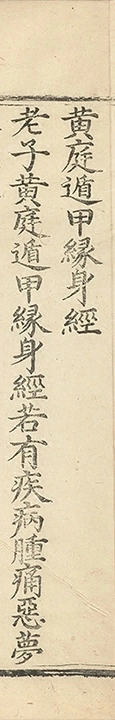 黃庭遁甲縁身經
老子黃庭遁甲縁身經若有疾病腫痛惡夢